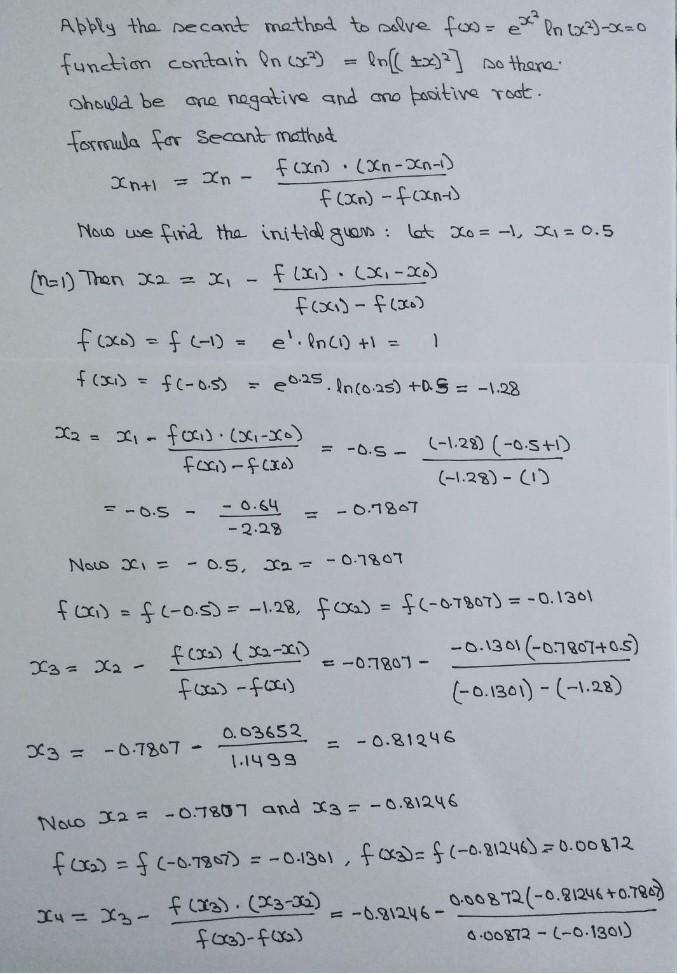 Apply the secant method to solve f(x) = e^{x²} ln(x²)-x=0
function contain ln(x²) = ln[(±x)²] so there
should be one negative and one positive root.
formula for Secant method
xn+1 = xn - f(xn) · (xn-xn-1) / f(xn) - f(xn-1)
Now we find the initial guess : let x0 = -1, x1 = 0.5
(n=1) Then x2 = x1 - f(x1) · (x1-x0) / f(x1) - f(x0)
f(x0) = f(-1) = e¹. ln(1) +1 = 1
f(x1) = f(-0.5) = e^{0.25}. ln(0.25) +0.5 = -1.28
x2 = x1 - f(x1) · (x1-x0) / f(x1) - f(x0) = -0.5 - (-1.28) (-0.5+1) / (-1.28) - (1)
= -0.5 - -0.64 / -2.28 = -0.7807
Now x1 = -0.5, x2 = -0.7807
f(x1) = f(-0.5) = -1.28, f(x2) = f(-0.7807) = -0.1301
x3 = x2 - f(x2) (x2-x1) / f(x2) - f(x1) = -0.7807 - -0.1301 (-0.7807+0.5) / (-0.1301) - (-1.28)
x3 = -0.7807 - 0.03652 / 1.1499 = -0.81246
Now x2 = -0.7807 and x3 = -0.81246
f(x2) = f(-0.7807) = -0.1301, f(x3) = f(-0.81246) = 0.00872
x4 = x3 - f(x3) · (x3-x2) / f(x3) - f(x2) = -0.81246 - 0.00872 (-0.81246+0.7807) / 0.00872 - (-0.1301)